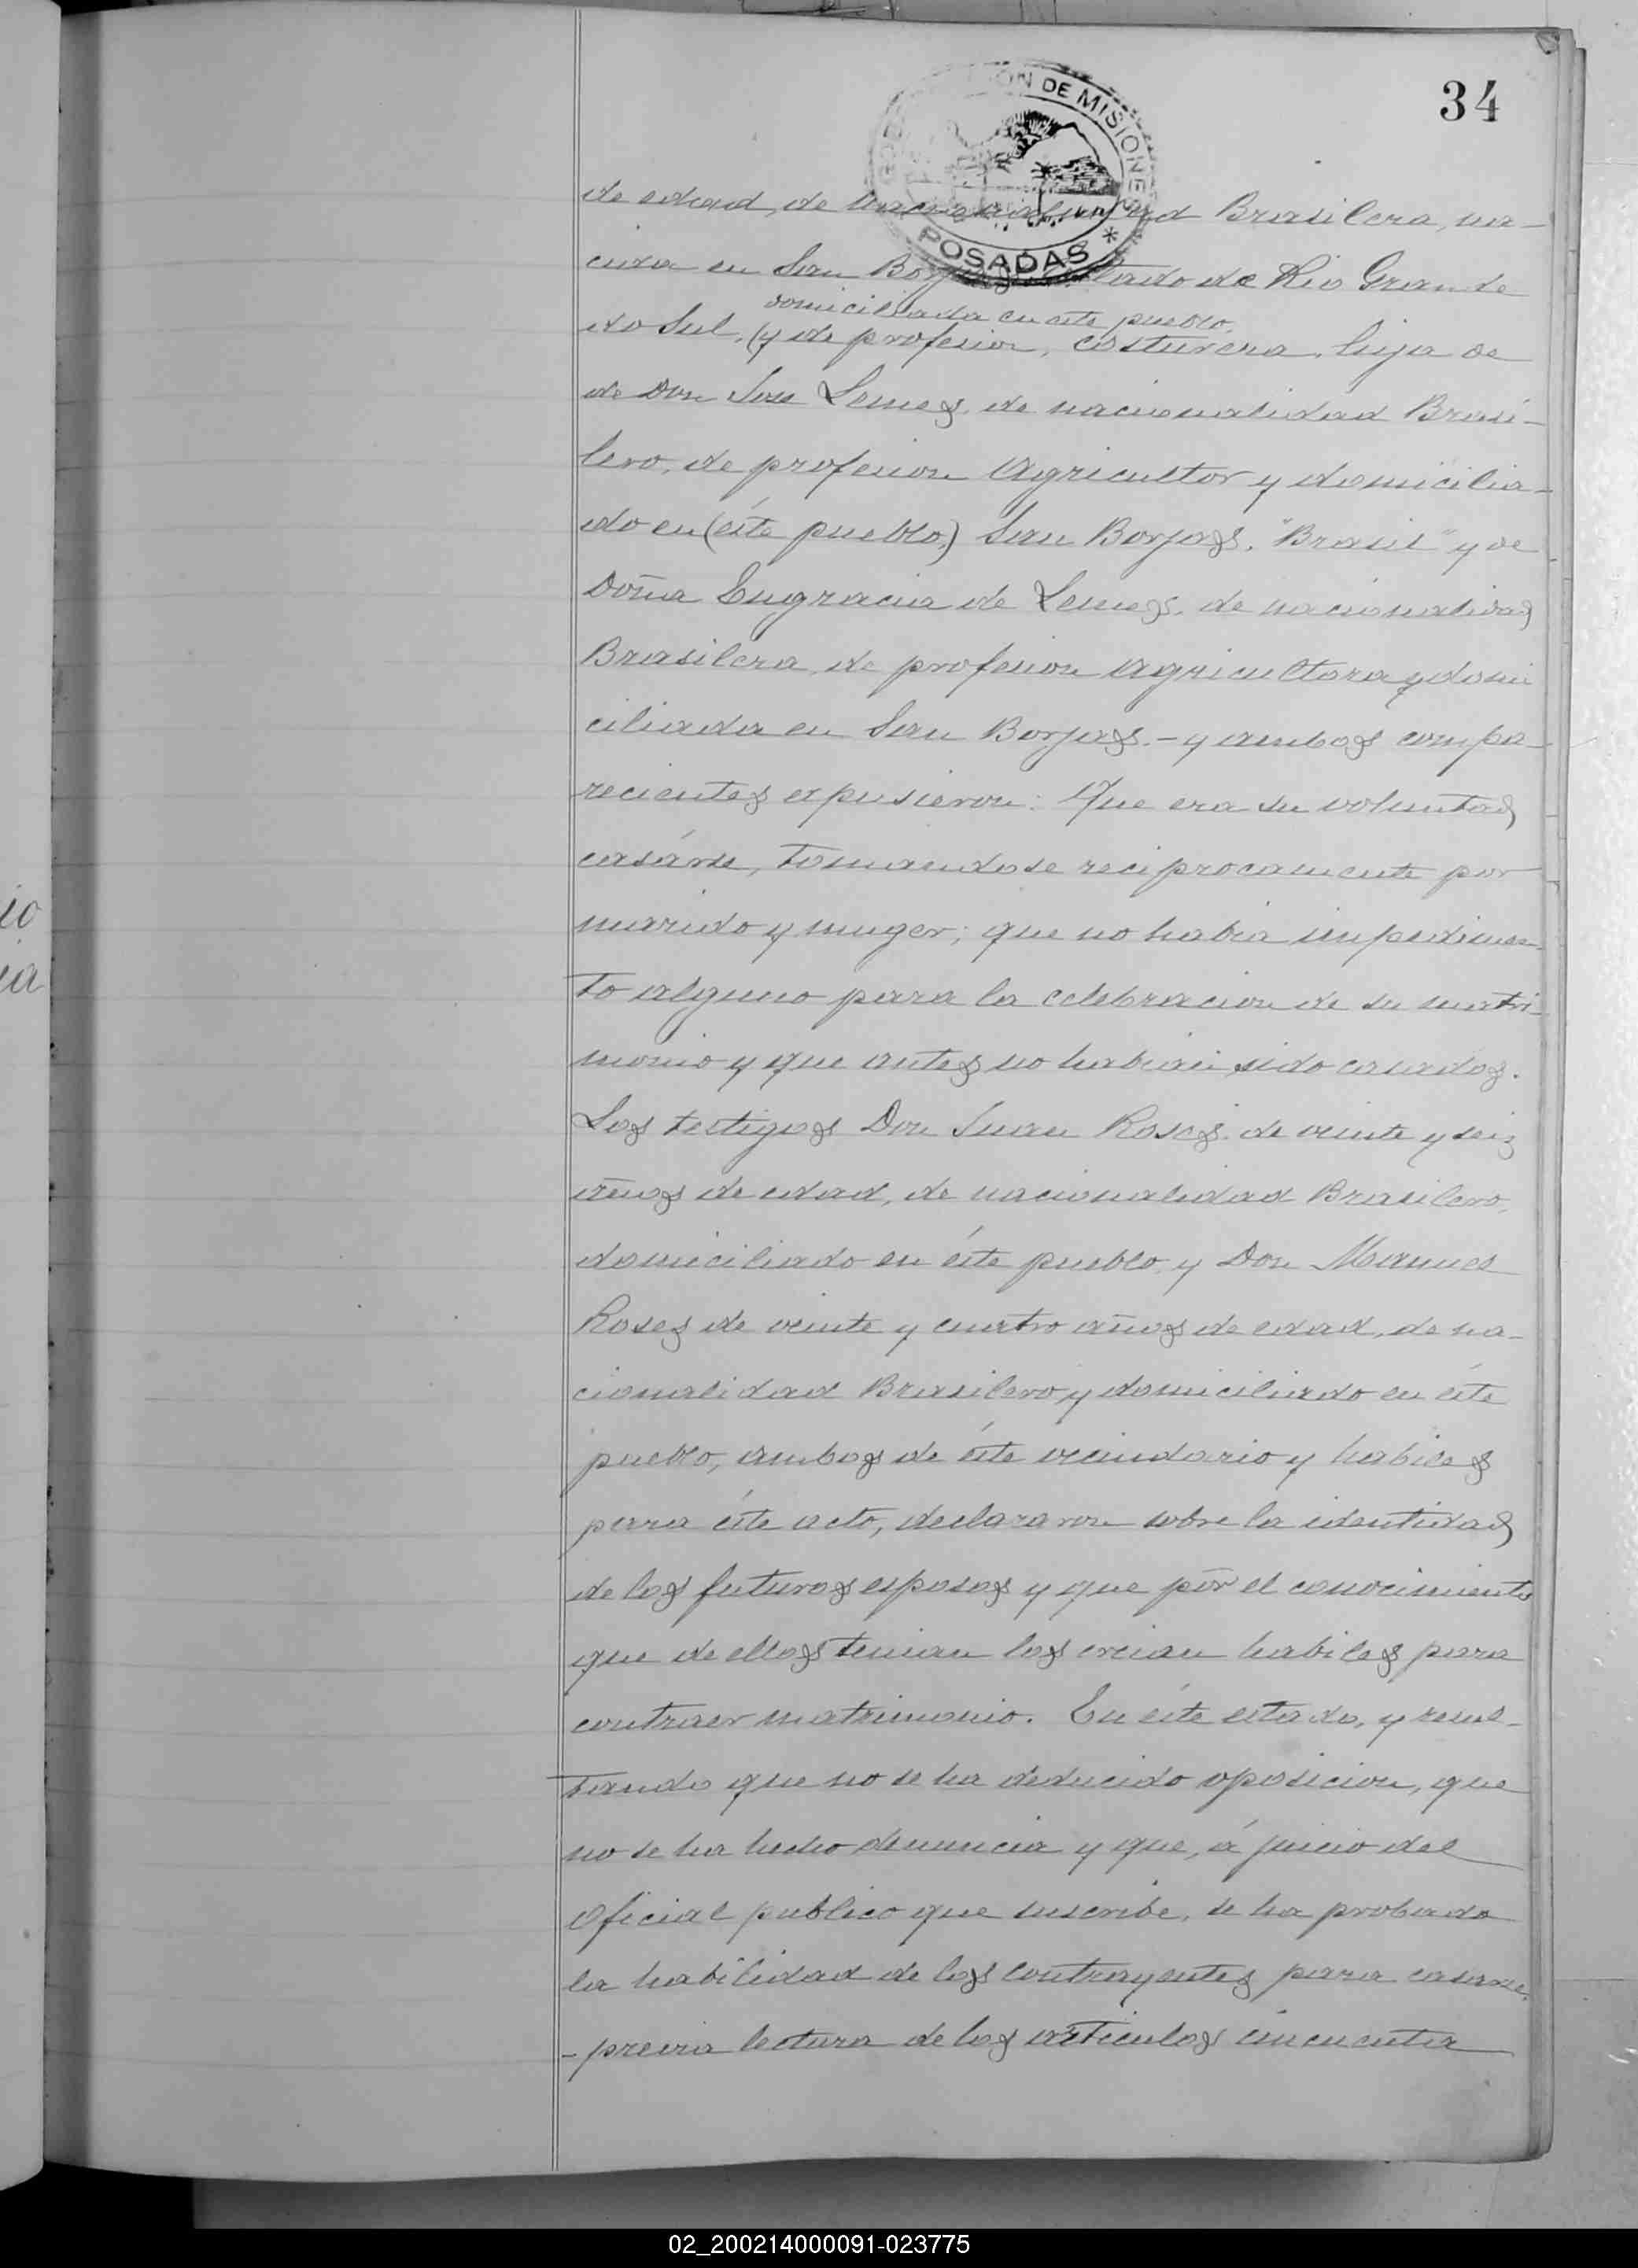 34
ON DE MISIONES
POSADAS *
de edad, de nacionalidad Brasilera, na-
cida en San Borjas Estado de Rio Grande
domiciliada en este pueblo,
do Sul, (y de profesion, costurera, hija de
de Don Jose Lemes, de nacionalidad Brasi-
lero, de profesion Agricultor y domicilia-
do en (éste pueblo,) San Borjas. "Brasil" y de
Doña Engracia de Lemes, de nacionalidad
Brasilera, de profesion Agricultora y domi
ciliada en San Borjas. - y ambos compa-
recientes expusieron: Que era su voluntad
casárse, tomandose reciprocamente por
marido y muger; que no habia impedimen-
to alguno para la celebracion de su matri-
monio y que antes no habian sido casados.
Los testigos Don Juan Roses, de veinte y seis
años de edad, de nacionalidad Brasilero,
domiciliado en éste pueblo, y Don Manuel
Roses de veinte y cuatro años de edad, de na-
cionalidad Brasilero, y domiciliado en éste
pueblo, ambos de éste vecindario y habiles
para éste acto, declararon sobre la identidad
de los futuros esposos y que por el conocimiento
que de ellos tenian los creian habiles para
contraer matrimonio. En éste estado, y resul-
tando que no se ha deducido oposicion, que
no se ha hecho denuncia y que, á juicio del
Oficial publico que suscribe, se ha probado
la habilidad de los contrayentes para casarse,
- previa lectura de los articulos cincuenta
io
ia
02_200214000091-023775